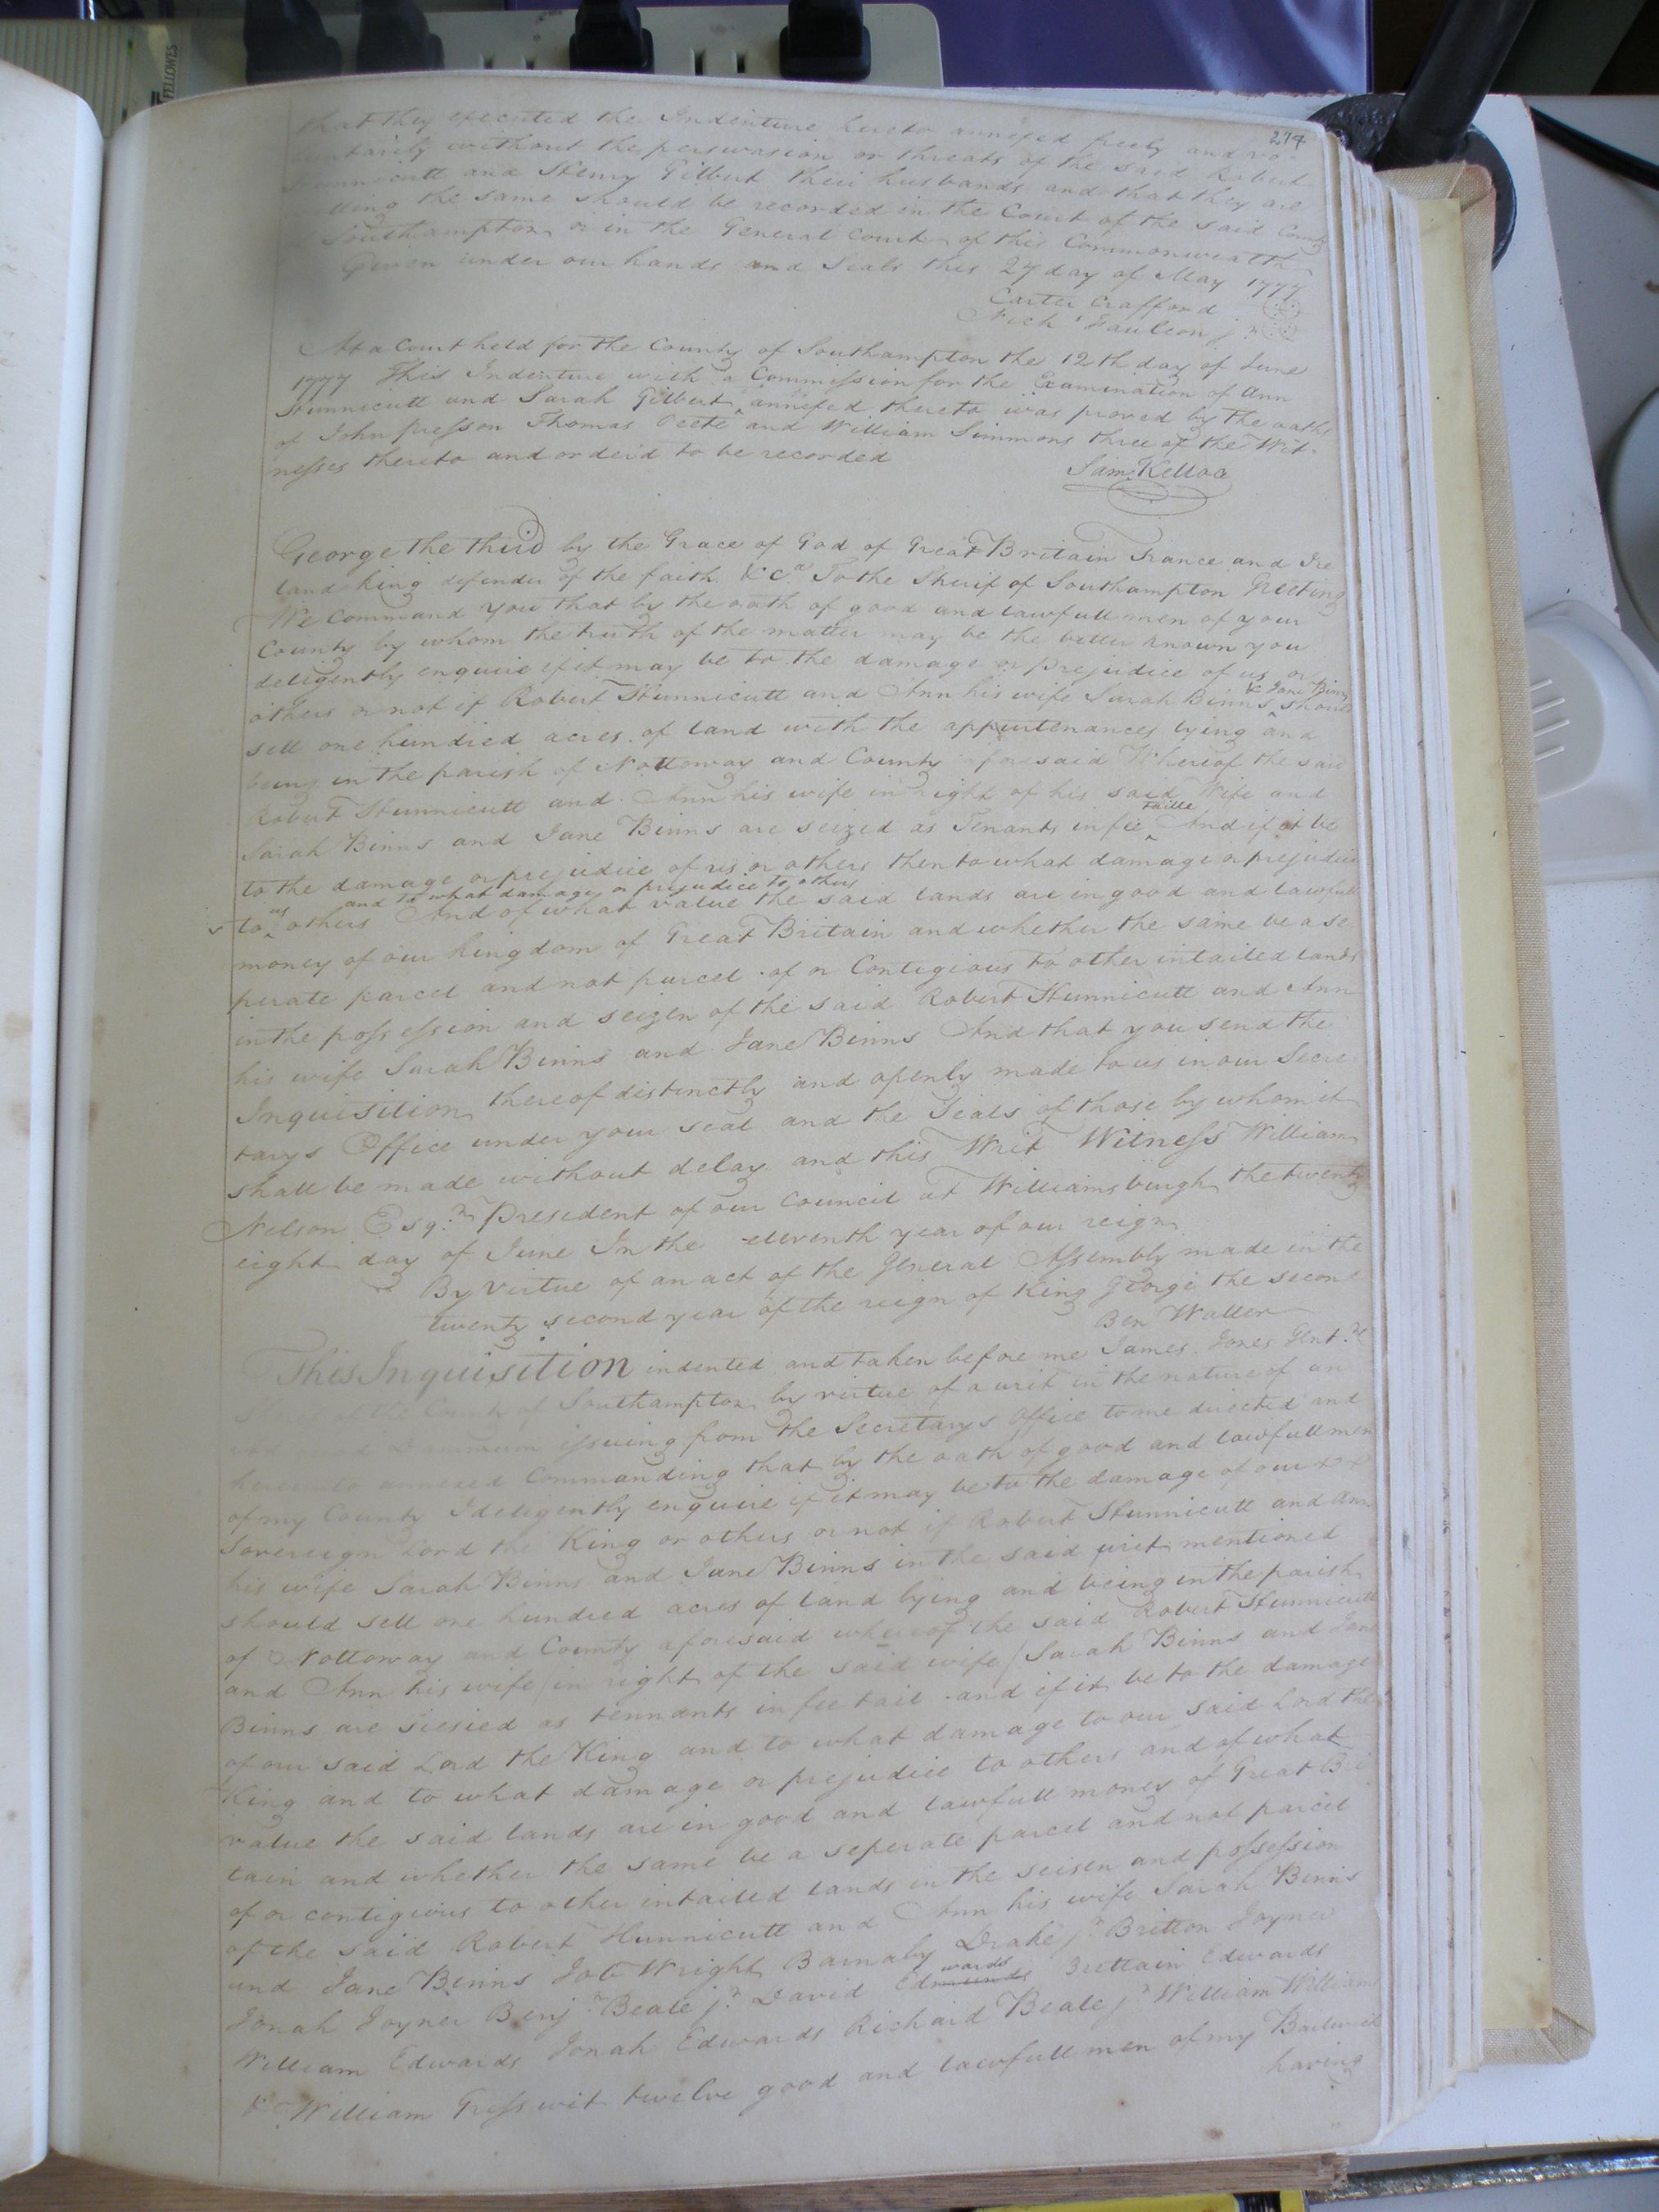 FELLOWES
274
that they executed the Indenture hereto annexed freely and vo-
luntarily without the perswasion or threats of the said Robert
Hunnicutt and Henry Gilbert their husbands and that they are
willing the same should be recorded in the Court of the said County
Southampton or in the General Court of this Commonwealth
Given under our hands and Seals this 27 day of May 1777
Carter Crafford
Nich.s Faulcon jr
At a Court held for the County of Southampton the 12th day of June
1777 This Indenture with a Commission for the Examination of Ann
Hunnicutt and Sarah Gilbert annexed thereto was proved by the oaths
of John Presson Thomas Peete and William Simmons three of the Wit-
nesses thereto and orderd to be recorded
Sam. Kelloe
George the third by the Grace of God of Great Britain France and Ire
land king defender of the faith &c.a To the Sherif of Southampton Greeting
We Command you that by the oath of good and lawfull men of your
County by whom the truth of the matter may be the better known you
deligently enquire if it may be to the damage or prejudice of us or
& Jane Binns
others or not if Robert Hunnicutt and Ann his wife Sarah Binns ^ should
sell one hundred acres of land with the appurtenances lying and
being in the parish of Nottoway and County aforesaid Whereof the said
Robert Hunnicutt and Ann his wife in right of his said Wife and
taille
Sarah Binns and Jane Binns are seized as Tenants in fee ^ And if it be
to the damage or prejudice of us or others then to what damage or prejudice
us and to what damage or prejudice to others
to ^ others And of what value the said lands are in good and lawfull
money of our kingdom of Great Britain and whether the same be a se
perate parcel and not parcel of or Contigious to other intailed lands
in the possession and seizen of the said Robert Hunnicutt and Ann
his wife Sarah Binns and Jane Binns And that you send the
Inquisition thereof distinctly and openly made to us in our Secre
tarys Office under your seal and the Seals of those by whom it
shall be made without delay and this Writ Witness William
Nelson Esq.r President of our Council at Williamsburgh the twenty
eight day of June In the eleventh year of our reign
By virtue of an act of the General Assembly made in the
twenty second year of the reign of King George the second
Ben Waller
This Inquisition indented and taken before me James Jones Gent.
of the County of Southampton by virtue of a writ in the nature of an
Damnum issuing from the Secretarys Office to me directed and
hereunto annexed Commanding that by the oath of good and lawfull men
of my County I deligently enquire if it may be to the damage of our
Sovereign Lord the King or others or not if Robert Hunnicutt and Ann
his wife Sarah Binns and Jane Binns in the said writ mentioned
should sell one hundred acres of land lying and being in the parish
of Nottoway and County aforesaid whereof the said Robert Hunnicutt
and Ann his wife (in right of the said wife) Sarah Binns and Jane
Binns are siesied as tennants in fee tail and if it be to the damage
of our said Lord the King and to what damage to our said Lord the
King and to what damage or prejudice to others and of what
value the said lands are in good and lawfull money of Great Bri
tain and whether the same be a seperate parcel and not parcel
of or contigious to other intailed lands in the seisen and possession
of the said Robert Hunnicutt and Ann his wife Sarah Binns
and Jane Binns Job Wright Barnaby Drake jr Britton Joyner
wards
Jonah Joyner Benj.n Beale jr David Edmunds Brittain Edwards
William Edwards Jonah Edwards Richard Beale jr William William
& William Gress wit twelve good and lawfull men of my Bailiwick
having